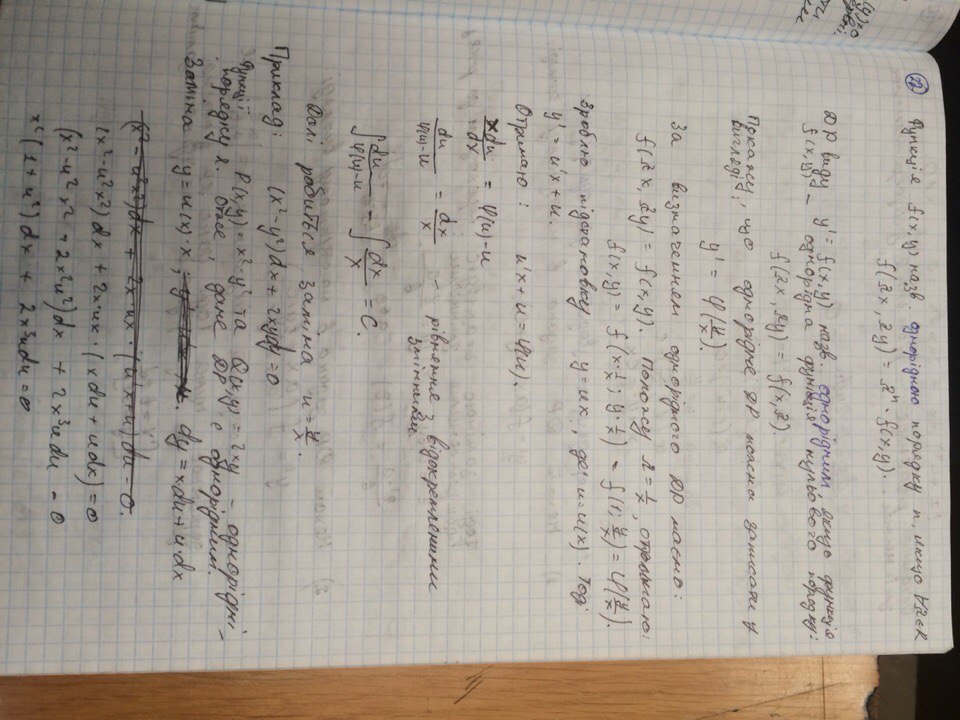 22 Функція f(x,y) назв. однорідною порядку n, якщо ∀λ∈R
f(λx, λy) = λⁿ · f(x,y).
ДР виду y' = f(x,y) назв. однорідним, якщо функція
f(x,y) – однорідна функція нульового порядку:
f(λx, λy) = f(x,λ).
Покажу, що однорідне ДР можна записати у
вигляді:
y' = φ(y/x).
За визначенням однорідного ДР маємо:
f(λx, λy) = f(x,y). Положу λ = 1/x, отримаю:
f(x,y) = f(x·1/x; y·1/x) = f(1; y/x) = φ(y/x).
Зроблю підстановку y = ux, де u = u(x). Тоді
y' = u'x + u.
Отримаю: u'x + u = φ(u).
xdu/dx = φ(u) - u
du/(φ(u)-u) = dx/x – рівняння з відокремленими
змінними.
∫ du/(φ(u)-u) - ∫ dx/x = C.
Далі робиться заміна u = y/x.
Приклад: (x² - y²)dx + 2xydy = 0
Функції P(x,y) = x² - y² та Q(x,y) = 2xy – однорідні,
порядку 2. Отже, дане ДР є однорідним.
Заміна y = u(x)·x, dy = xdu + u·dx
(x² - u²x²)dx + 2x·ux·(u'x + u)du = 0.
(x² - u²x²)dx + 2x·ux·(xdu + udx) = 0
(x² - u²x² + 2x²u²)dx + 2x³udu = 0
x²(1 + u²)dx + 2x³udu = 0